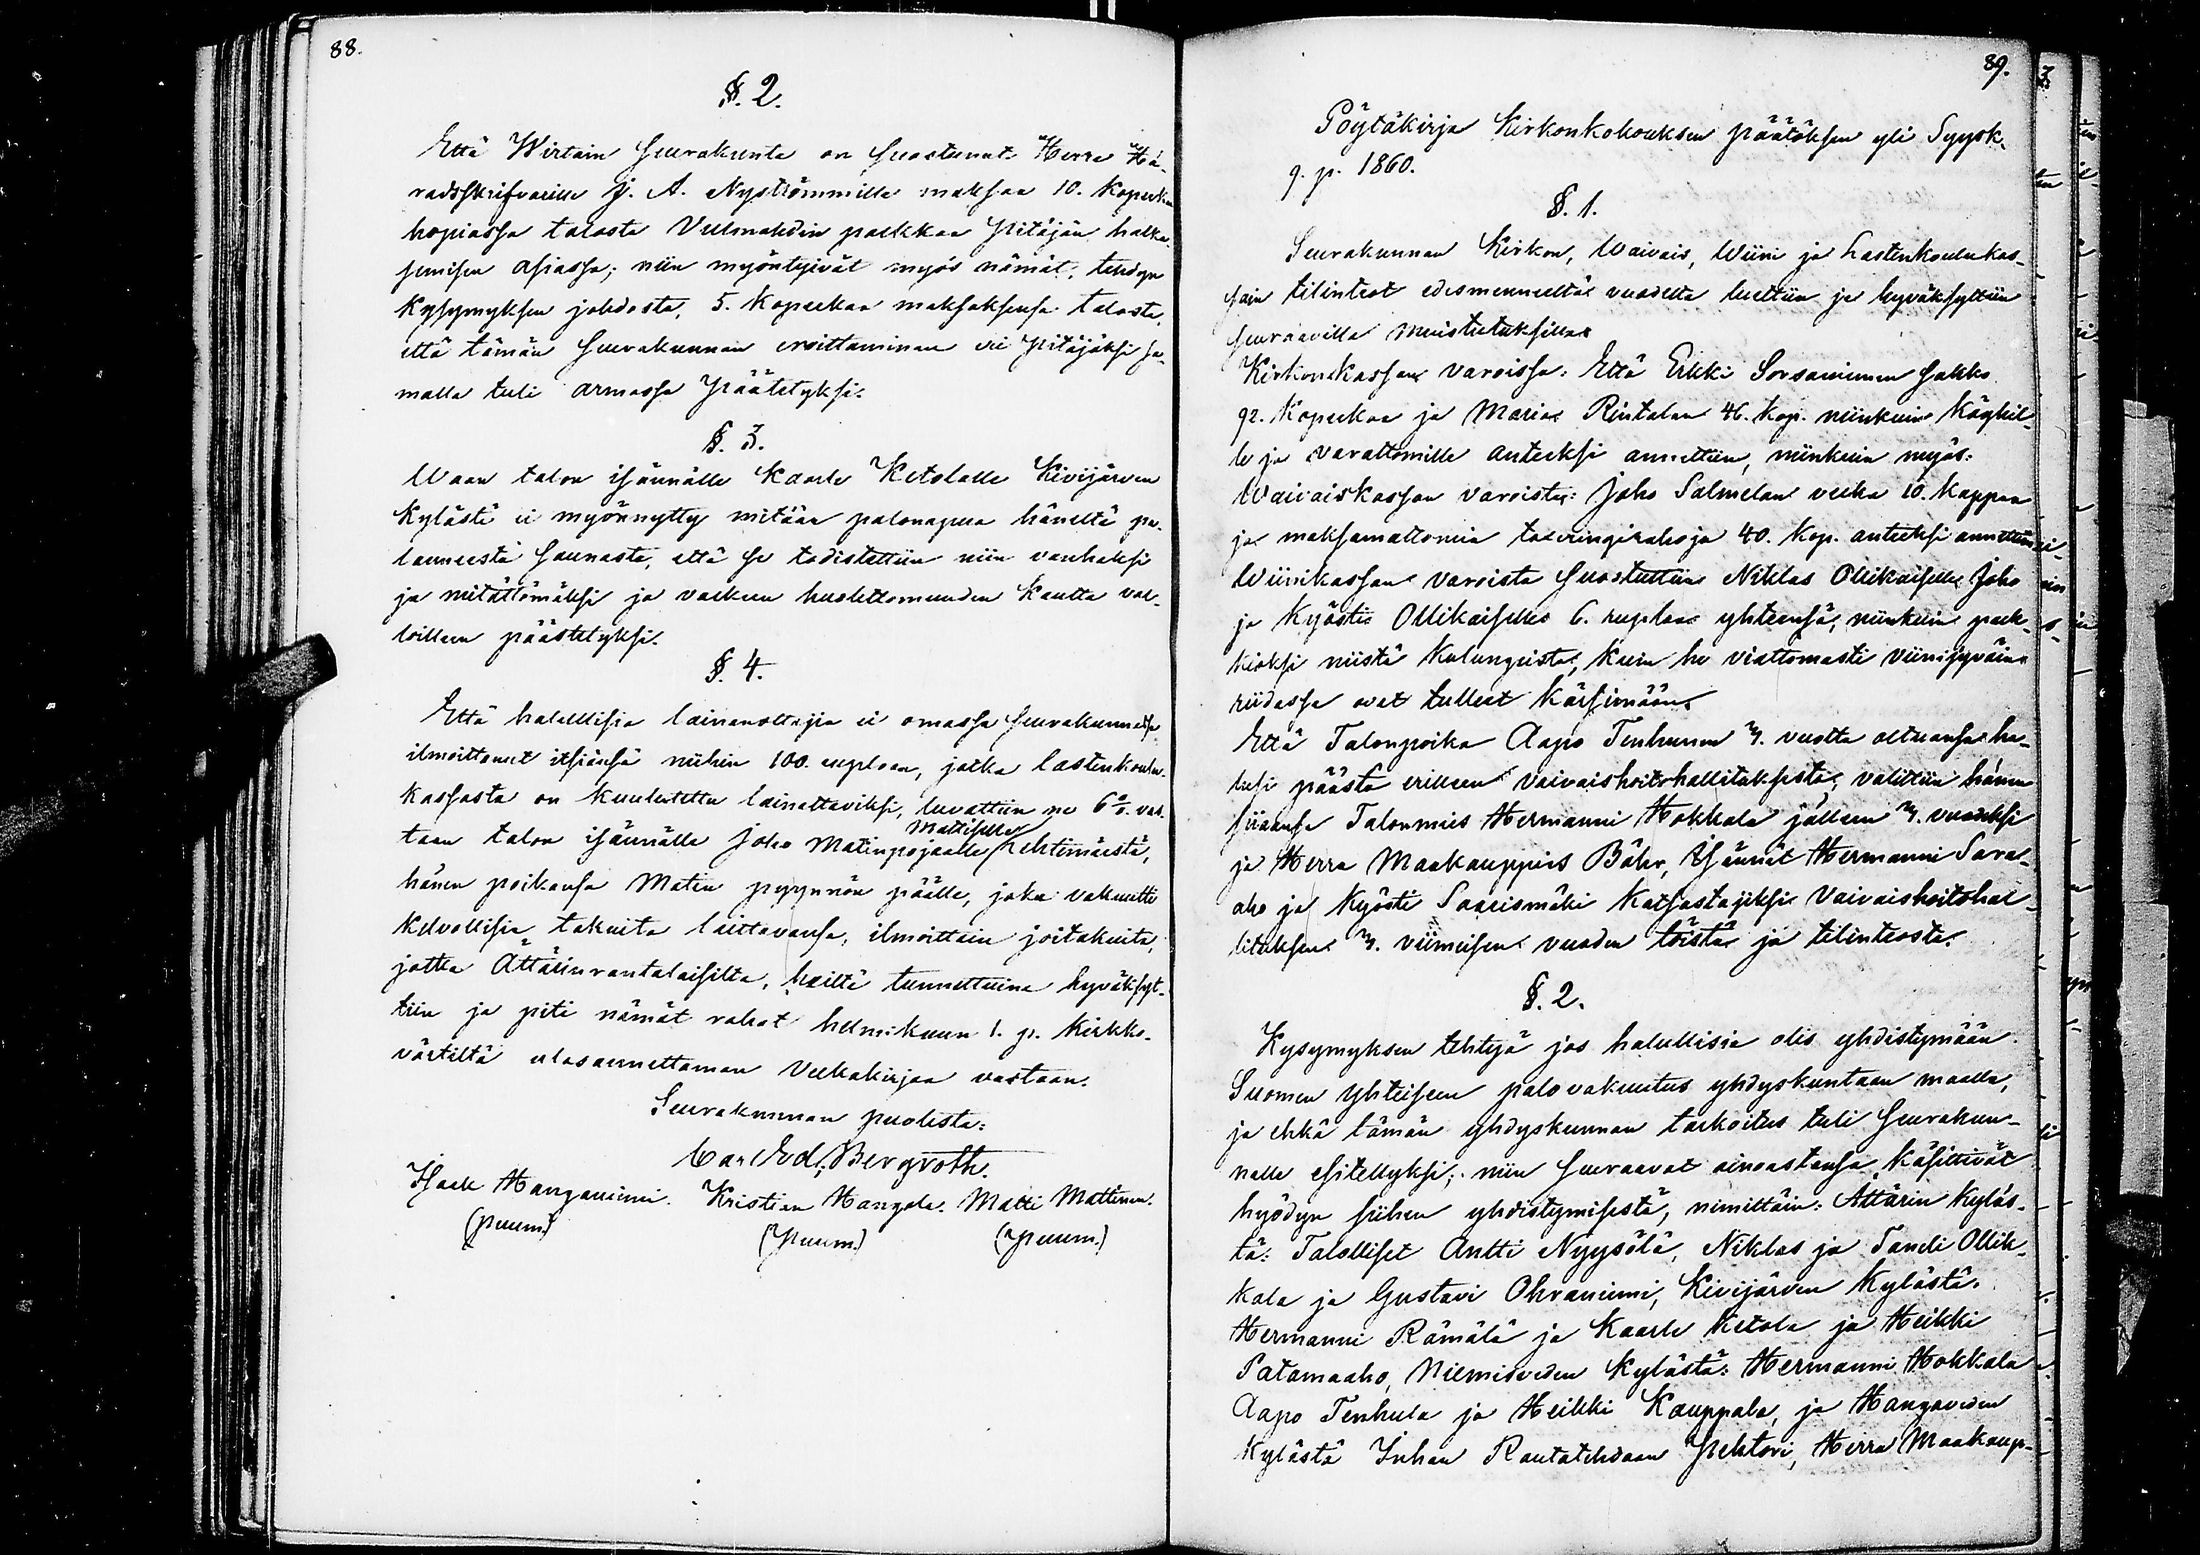 88.
§. 2.
Että Wirtain Seurakunta on suostunut Herra Hä-
radsskrifvarille J. A. Nyströmmille maksaa 10. Kopeekaa
hopiassa talosta Vulmahdin palkkaa Pitäjän halka-
semisen asiassa; niin myöntyivät myös nämät, tehdyn
Kysymyksen johdosta, 5. Kopeekaa maksaksensa talosta,
että tämän Seurakunnan eroittaminen eri Pitäjäksi sa-
malla tuli armossa Päätetyksi.
§. 3.
Waan talon isännälle Kaarle Ketolalle Kivijärven
Kylästä ei myönnytty mitään palonapua häneltä pa-
launeesta Saunasta, että se todistettiin niin vanhaksi
ja mitättömäksi ja valkean huolettomuuden Kautta val-
loilleen päästetyksi.
§. 4.
Että halullisia lainanottajia ei omassa Seurakunnassa
ilmoittanut itsiänsä niihin 100. ruplaan, jotka lastenkoulu-
kassasta on kuulutettu lainattaviksi, luvattiin ne 6% vas-
taan talon isännälle Joho Matinpojalle Mattiselle Lehtimäestä,
hänen poikansa Matin pyynnön päälle, joka vakuutti
Kelvollisia takuita laittavansa, ilmoittain joitakuita,
jotka Ättärinrantalaisilta, heiltä tunnettuina hyväksyt-
tiin ja piti nämät rahat helmikuun 1. p. Kirkko-
värtiltä ulosannettaman Velkakirjaa vastaan.
Seurakunnan puolesta:
Carl Ed. Bergroth.
Isak Hanganiemi. Kristian Hangola. Matti Mattinen.
(puum.) (puum.) (puum.)
89.
Pöytäkirja Kirkonkokouksen päätöksen yli Syysk.
9. p. 1860.
§. 1.
Seurakunnan Kirkon, Waivais, Wiini ja Lastenkoulukas-
sain tilinteot edesmenneeltä vuodelta luettiin ja hyväksyttiin
seuraavilla muistutuksilla:
Kirkonkassan varoissa: Että Erkki Sorsaniemen sakko
92. Kopeekaa ja Maria Rintalan 46. Kop. niinkuin Köyhil-
le ja varattomille anteeksi annettiin, niinkuin myös:
Waivaiskassan varoista: Joho Salmelan velka 10. Kappaa
ja maksamattomia taxeringirahoja 40. Kop. anteeksi annettiin
Wiinikassan varoista suostuttiin Niklas Ollikaiselle, Joho
ja Kyösti Ollikaiselle 6. ruplaa yhteensä, niinkuin palk-
kioksi niistä Kulungeista, kuin he viattomasti viinisyväin
riidassa ovat tulleet Kärsimään.
Että Talonpoika Aapo Tenhunen vuotta oltuansa ha-
lusi päästä erilleen vaivaishoitohallituksesta, valittiin hänen
siaansa Talonmies Hermanni Hokkala jälleen vuodeksi
ja Herra Maakauppias Bähr, Isännät Hermanni Sara-
aho ja Kyösti Saarismäki Katsastajiksi Vaivaishoitohal-
lituksen viimeisen vuoden töistä ja tilinteosta.
§. 2.
Kysymyksen tehtyä jos halullisia olis yhdistymään
Suomen Yhteiseen palovakuutus yhdyskuntaan maalla,
ja ehkä tämän yhdyskunnan tarkoitus tuli Seurakun-
nalle esitellyksi; niin seuraavat ainoastansa käsittivät
hyödyn siihen yhdistymisestä, nimittäin: Ättärin Kyläs-
tä: Talolliset Antti Nyysölä, Niklas ja Taneli Ollik-
kala ja Gustavi Ohraniemi, Kivijärven Kylästä:
Hermanni Rämälä ja Kaarle Ketola ja Heikki
Patamaaho, Niemisveden Kylästä: Hermanni Hokkala
Aapo Tenhula ja Heikki Kauppala, ja Hangaveden
Kylästä Inhan Rautatehdaan Pehtori, Herra Maakaup-